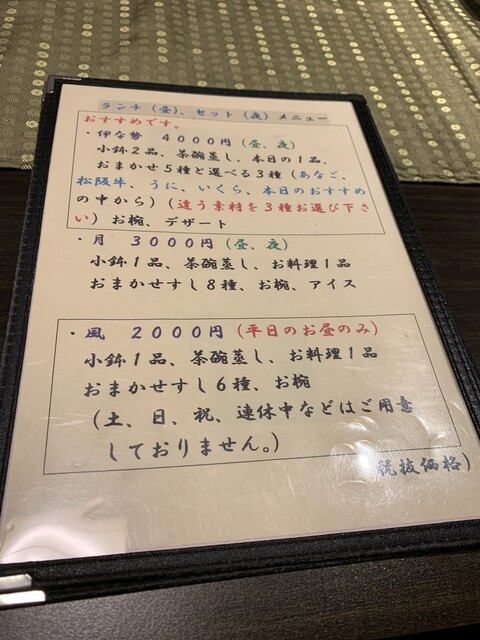 ランチ（昼）、セット（夜）メニュー
おすすめです。
・伊な勢　４０００円（昼、夜）
小鉢２品、茶碗蒸し、本日の１品、
おまかせ５種と選べる３種（あなご、
松阪牛、うに、いくら、本日のおすすめ
の中から）（違う素材を３種お選び下さ
い）お椀、デザート
・月　３０００円（昼、夜）
小鉢１品、茶碗蒸し、お料理１品
おまかせすし８種、お椀、アイス
・風　２０００円（平日のお昼のみ）
小鉢１品、茶碗蒸し、お料理１品
おまかせすし６種、お椀
（土、日、祝、連休中などはご用意
しておりません。）
税抜価格）